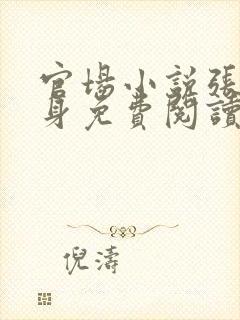 官場小說張
身免費閱讀
倪濤